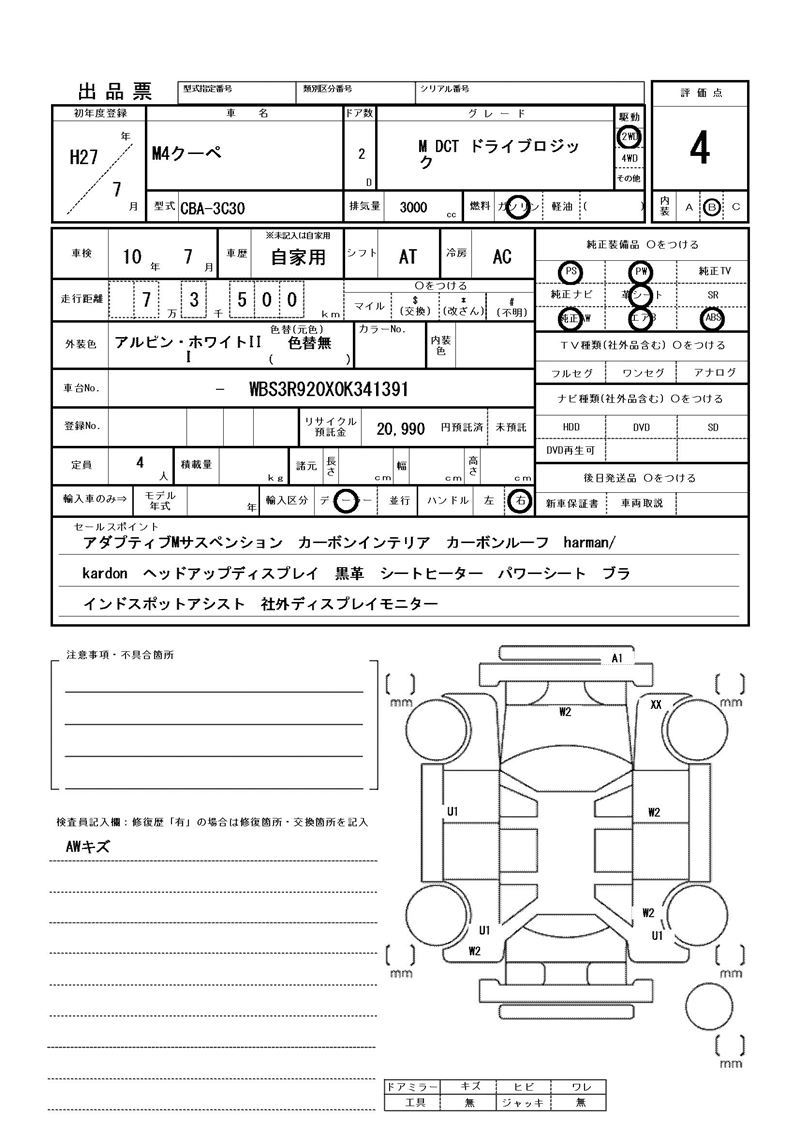 出品票 型式指定番号 類別区分番号 シリアル番号 評価点
初年度登録 車名 ドア数 グレード 駆動
H27年 7月 M4クーペ 2D M DCT ドライブロジッ
ク
2WD
4WD
その他
4
型式 CBA-3C30 排気量 3000cc 燃料 ガソリン 軽油 ( ) 内装 A B C
車検 10年 7月 車歴 ※未記入は自家用 自家用 シフト AT 冷房 AC
走行距離 7万 3千 500km
○をつける
マイル $(交換) *(改ざん) #(不明)
外装色 アルピン・ホワイトII
I
色替(元色) 色替無 ( ) カラーNo. 内装色
車台No. - WBS3R920X0K341391
登録No. リサイクル預託金 20,990 円預託済 未預託
定員 4人 積載量 kg 諸元 長さ cm 幅 cm 高さ cm
輸入車のみ⇒ モデル年式 年 輸入区分 ディーラー 並行 ハンドル 左 右
純正装備品 ○をつける
PS PW 純正TV
純正ナビ 革シート SR
純正AW エアB ABS
TV種類(社外品含む) ○をつける
フルセグ ワンセグ アナログ
ナビ種類(社外品含む) ○をつける
HDD DVD SD
DVD再生可
後日発送品 ○をつける
新車保証書 車両取説
セールスポイント
アダプティブMサスペンション カーボンインテリア カーボンルーフ harman/
kardon ヘッドアップディスプレイ 黒革 シートヒーター パワーシート ブラ
インドスポットアシスト 社外ディスプレイモニター
注意事項・不具合箇所
検査員記入欄:修復歴「有」の場合は修復箇所・交換箇所を記入
AWキズ
A1
mm mm
W2 XX
U1 W2
W2
U1 U1
W2
mm mm
mm
ドアミラー キズ ヒビ ワレ
工具 無 ジャッキ 無